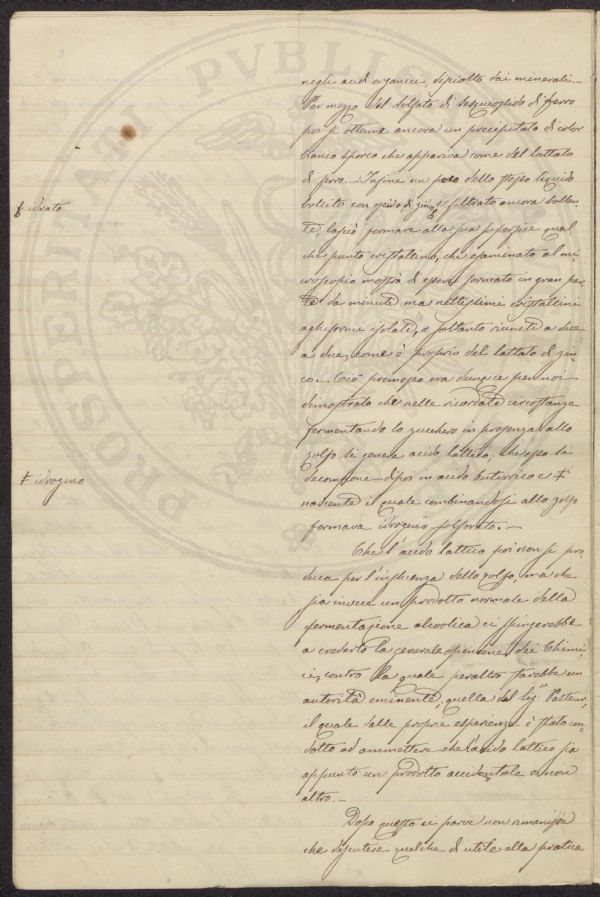 negli acidi organici, dipiotto dai minerali.-
Per mezzo del solfato di sesquiossido di ferro
poi si ottenne ancora un precipitato di color
bianco sporco che appariva come del lattato
di ferro.- Infine un poco dello stesso liquido
bollito con ossido di zinco ŧ e filtrato ancora bollen-
te, lasciò formare alla sua superficie qual
che punto cristallino, che esaminato al mi
croscopio mostrò di essere formato in gran par-
te da minuti ma nettissimi cristallini
aghiformi isolati, o soltanto riuniti a due
a due, come è proprio del lattato di zin-
co.- Ciò premesso era dunque per noi
dimostrato che nelle ricordate circostanze
fermentando lo zucchero in presenza allo
zolfo si genera acido lattico, che poi si
decompone dipoi in acido butirrico e ŧ
nascente il quale combinandosi allo zolfo
formava idrogeno solforato.-
Che l'acido lattico poi non si pro-
duca per l'influenza dello zolfo, ma che
sia invece un prodotto normale della
fermentazione alcoolica ci spingerebbe
a crederlo la generale opinione dei Chimi-
ci, contro la quale peraltro starebbe un
autorità eminente, quella del Sig. Pasteur,
il quale dalle proprie esperienze è stato con-
dotto ad ammettere che l'acido lattico sia
appunto un prodotto accidentale e non
altro.-
Dopo questo ci parve non rimanesse
che discutere qualche di utile alla pratica
ŧ idrato
ŧ idrogeno
PROSPERITATI PVBLICAE